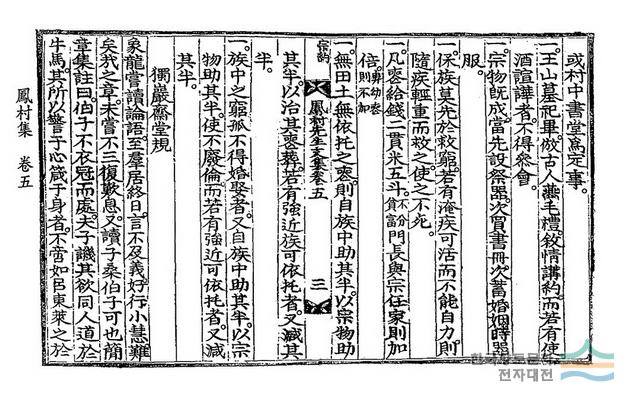 或村中書堂爲定事。
一。王山墓祀畢。倣古人燕毛禮。敘情講約。而若有使
酒諠譁者。不得參會。
一。宗物旣成。當先設祭器。次買書冊。次蓄婚姻時器
服。
一。保族莫先於救窮。若有淹疾可活而不能自力。則
隨疾輕重而救之。使之不死。
一。凡喪給錢二貫米五斗。不分貧富 門長與宗任家則加
倍。弱幼喪則不加
一。無田土無依托之喪。則自族中助其半。以宗物助
其半。以治其喪葬。若有強近族可依托者。又減其
半。
一。族中之窮孤不得婚娶者。又自族中助其半。以宗
物助其半。使不廢倫。而若有強近可依托者。又減
其半。
獨巖齋堂規
象龍嘗讀論語。至羣居終日。言不及義。好行小慧。難
矣哉之章。未嘗不三復歎息。又讀子桑伯子可也簡
章集註曰伯子不衣冠而處。夫子譏其欲同人道於
牛馬。其所以警于心。箴于身者。不啻如呂東萊之於
鳳村先生文集卷五
三
鳳村集 卷五
전자대전